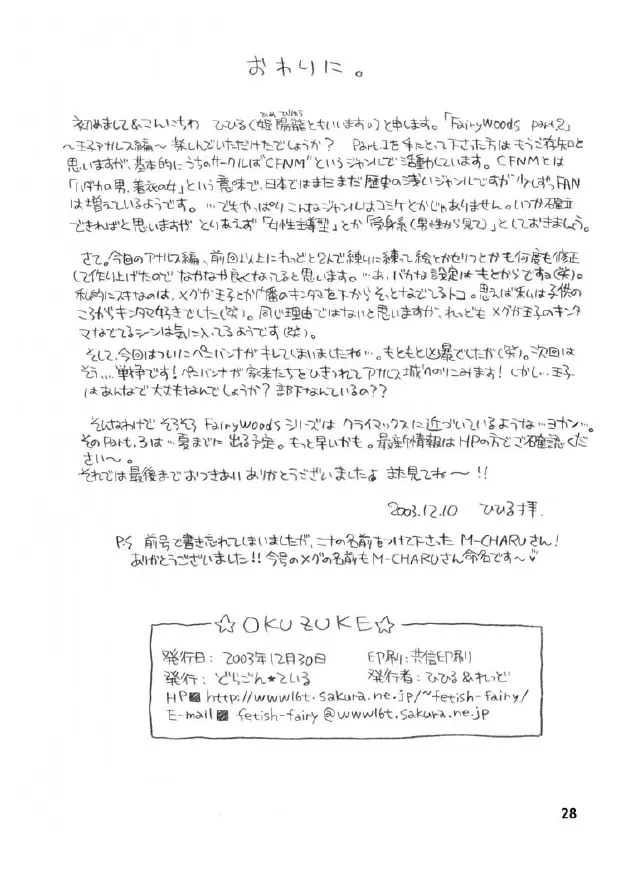 おわりに。
初めまして&こんにちわ ひひる(姫陽龍ともいいます。)と申します。「FairyWoods part.2」
〜王子アカルス編〜 楽しんでいただけたでしょうか? Part.1を手にとって下さった方はもうご存知と
思いますが、基本的にうちのサークルは"CFNM"というジャンルで活動しています。CFNMとは
「ハダカの男、着衣の女」という意味で、日本ではまだまだ歴史の浅いジャンルですが少しずつFAN
は増えているようです。…でもやっぱりこんなジャンルはコミケとかじゃありません。いつか確立
できればと思いますが とりあえず「女性主導型」とか「受身系(男性から見て)」としておきましょう。
さて。今回のアカルス編、前回以上にれっどと2人で練りに練って絵とかセリフとかも何度も修正
して作り上げたので なかなか良くなってると思います。…あ、バカな設定はもとからですョ(笑)。
私的にスキなのは、メグが王子とか のキンタマを下からそっとなでてるトコ。思えば私は子供の
ころからキンタマ好きでした(笑)。同じ理由ではないと思いますが、れっども メグが王子のキンタ
マなでてるシーンは気に入ってるようです(笑)。
そして、今回はついにペニバンナがキレてしまいましたね…。もともと凶暴でしたか(笑)。次回は
そう…戦争です! ペニバンナが家来たちをひきつれてアカルス城へのりこみます! しかし…王子
はあんなで大丈夫なんでしょうか? 部下なんているの??
そんなわけで そろそろ FairyWoodsシリーズは クライマックスに近づいているような…ヨカン…。
そのPart.3は…夏までに 出る予定。もっと早いかも。最新情報はHPの方でご確認くだ
さい〜。
それでは最後までおつきあい ありがとうございましたょ また見てね〜!!
2003.12.10 ひひる拝.
P.S 前号で書き忘れてしまいましたが、ニナの名前をつけて下さった M-CHARUさん!
ありがとうございました!! 今号のメグの名前も M-CHARUさん命名です〜♡
☆OKUZUKE☆
発行日: 2003年12月30日 印刷: 共信印刷
発行: どらごん★ている​ 発行者: ひひる&れっど
HP http://www16t.sakura.ne.jp/~fetish-fairy/
E-mail fetish-fairy@www16t.sakura.ne.jp
28